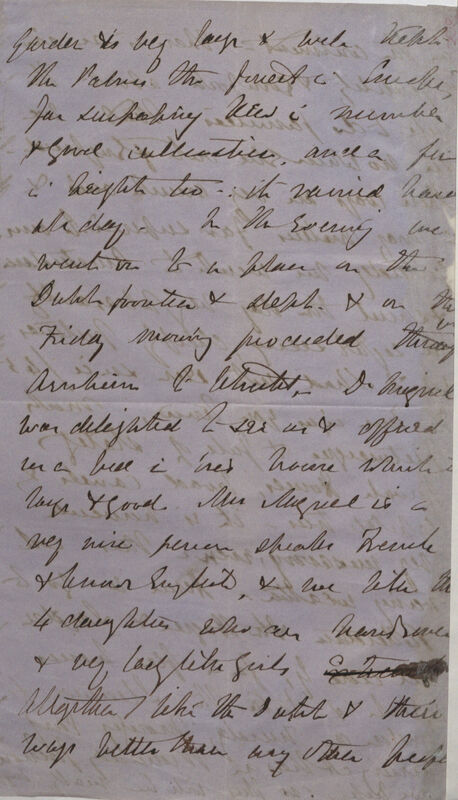 Garden is very large & well kept
the Palms the finest in Europe,
far surpassing Kew in number
& good cultivation, and a few
in height too - it rained hard
all day - In the Evening we
went on to a place on the
Dutch frontier & slept. & on the
Friday morning proceeded through
Arnheim to Utrecht. Dr Miquel
was delighted to see us & offered
us a bed in his house which is
large & good. Mrs Miquel is a
very nice person speaks French
& knows English, & we like the
4 daughters who are handsome
& very ladylike Girls
Altogether I like the Dutch & their
ways better than any other people